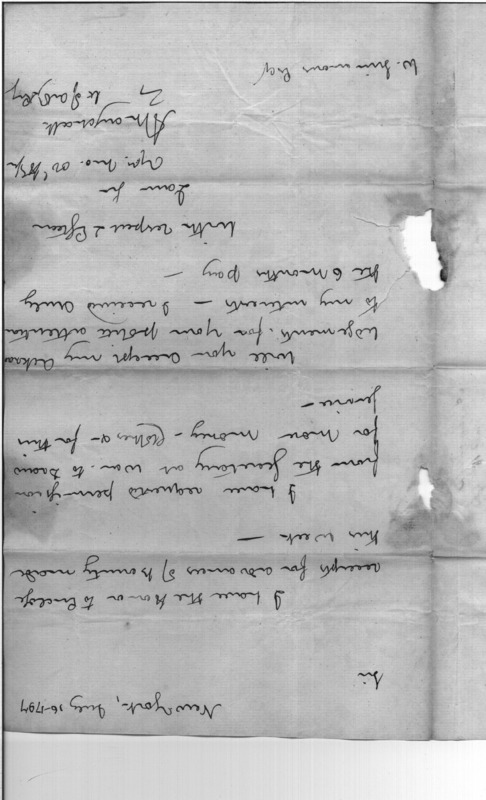 New York, July 16-1797
Sir
I have the Honor to Enclose
receipts for advances of bounty made
this week —
I have requested permission
from the Secretary at War. to draw
for more money —
for this
service —
Will you accept my acknow
ledgements. for your polite attention
to my interests — I received duly
the 6 months pay —
With respect & Esteem
I am Sir
Your. Mo. Ob
W. Simmons Esq